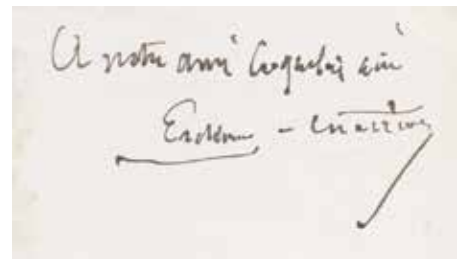 A notre ami Coquelin ainé
Erckmann - Chatrian